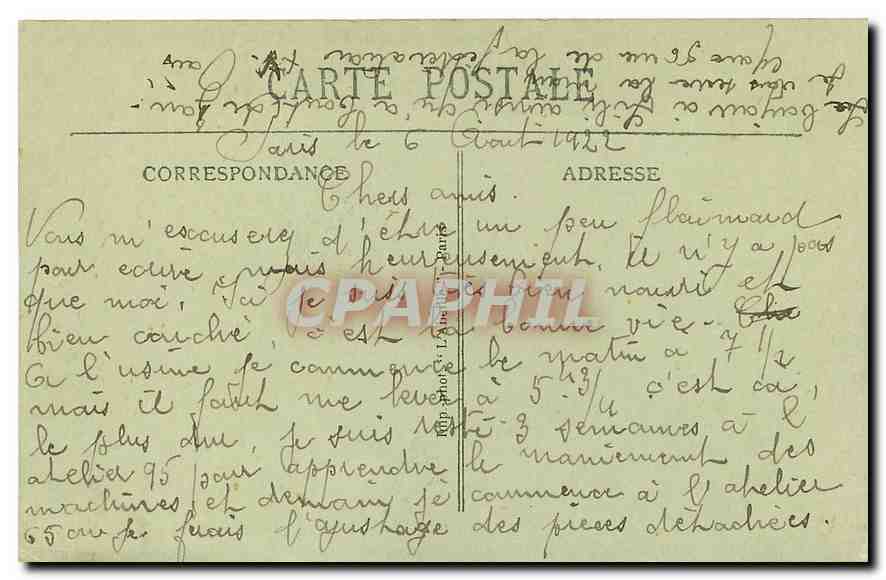 CARTE POSTALE
Paris le 6 Aout 1922
CORRESPONDANCE
ADRESSE
Chers amis.
Vous m'escuserez d'être un peu flaimard
pour ecrire mais heureusement, il n'y a pas
que moi. Ici je suis très bien nourri et
bien couché, c'est la bonne vie.
A l'usine je commence le matin à 7 1/2
mais il faut me lever à 5 3/4 c'est ça,
le plus dur, je suis resté 3 semaines à l'
atelier 95 pour apprendre le maniement des
machines et demain je commence à l'atelier
65 ou je ferais l'ajustage des pièces détachées.
Imp. phot. "L'Abeille" - Paris
CPAPHIL